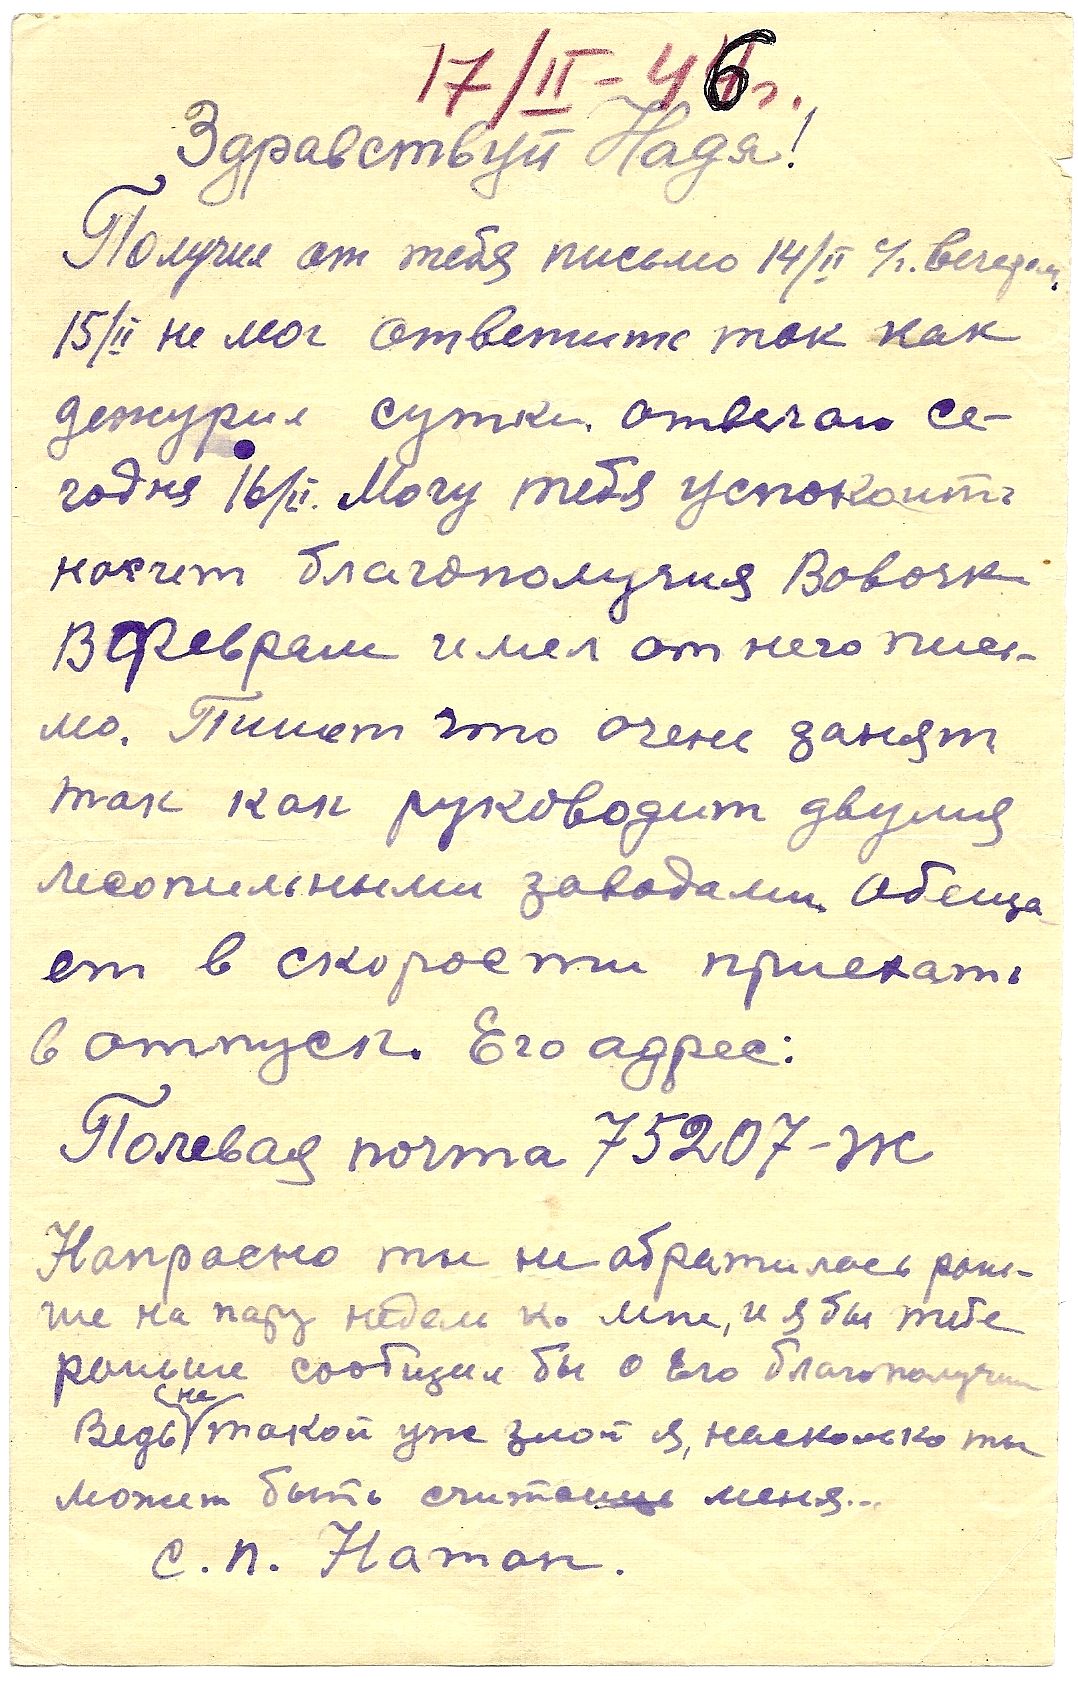 17/II-46г.
Здравствуй Надя!
Получил от тебя письмо 14/II с/г. вечером,
15/II не мог ответить так как
дежурил сутки. отвечаю се-
годня 16/II. Могу тебя успокоить
насчет благополучия Вовочки
В феврале имел от него пись-
мо. Пишет что очень занят
так как руководит двумя
лесопильными заводами. Обеща-
ет в скорости приехать
в отпуск. Его адрес:
Полевая почта 75207-Ж
Напрасно ты не обратилась рань-
ше на пару недель ко мне, и я бы тебе
раньше сообщил бы о его благополучии
Ведь не такой уже злой я, насколько ты
может быть считаешь меня...
с. п. Натан.